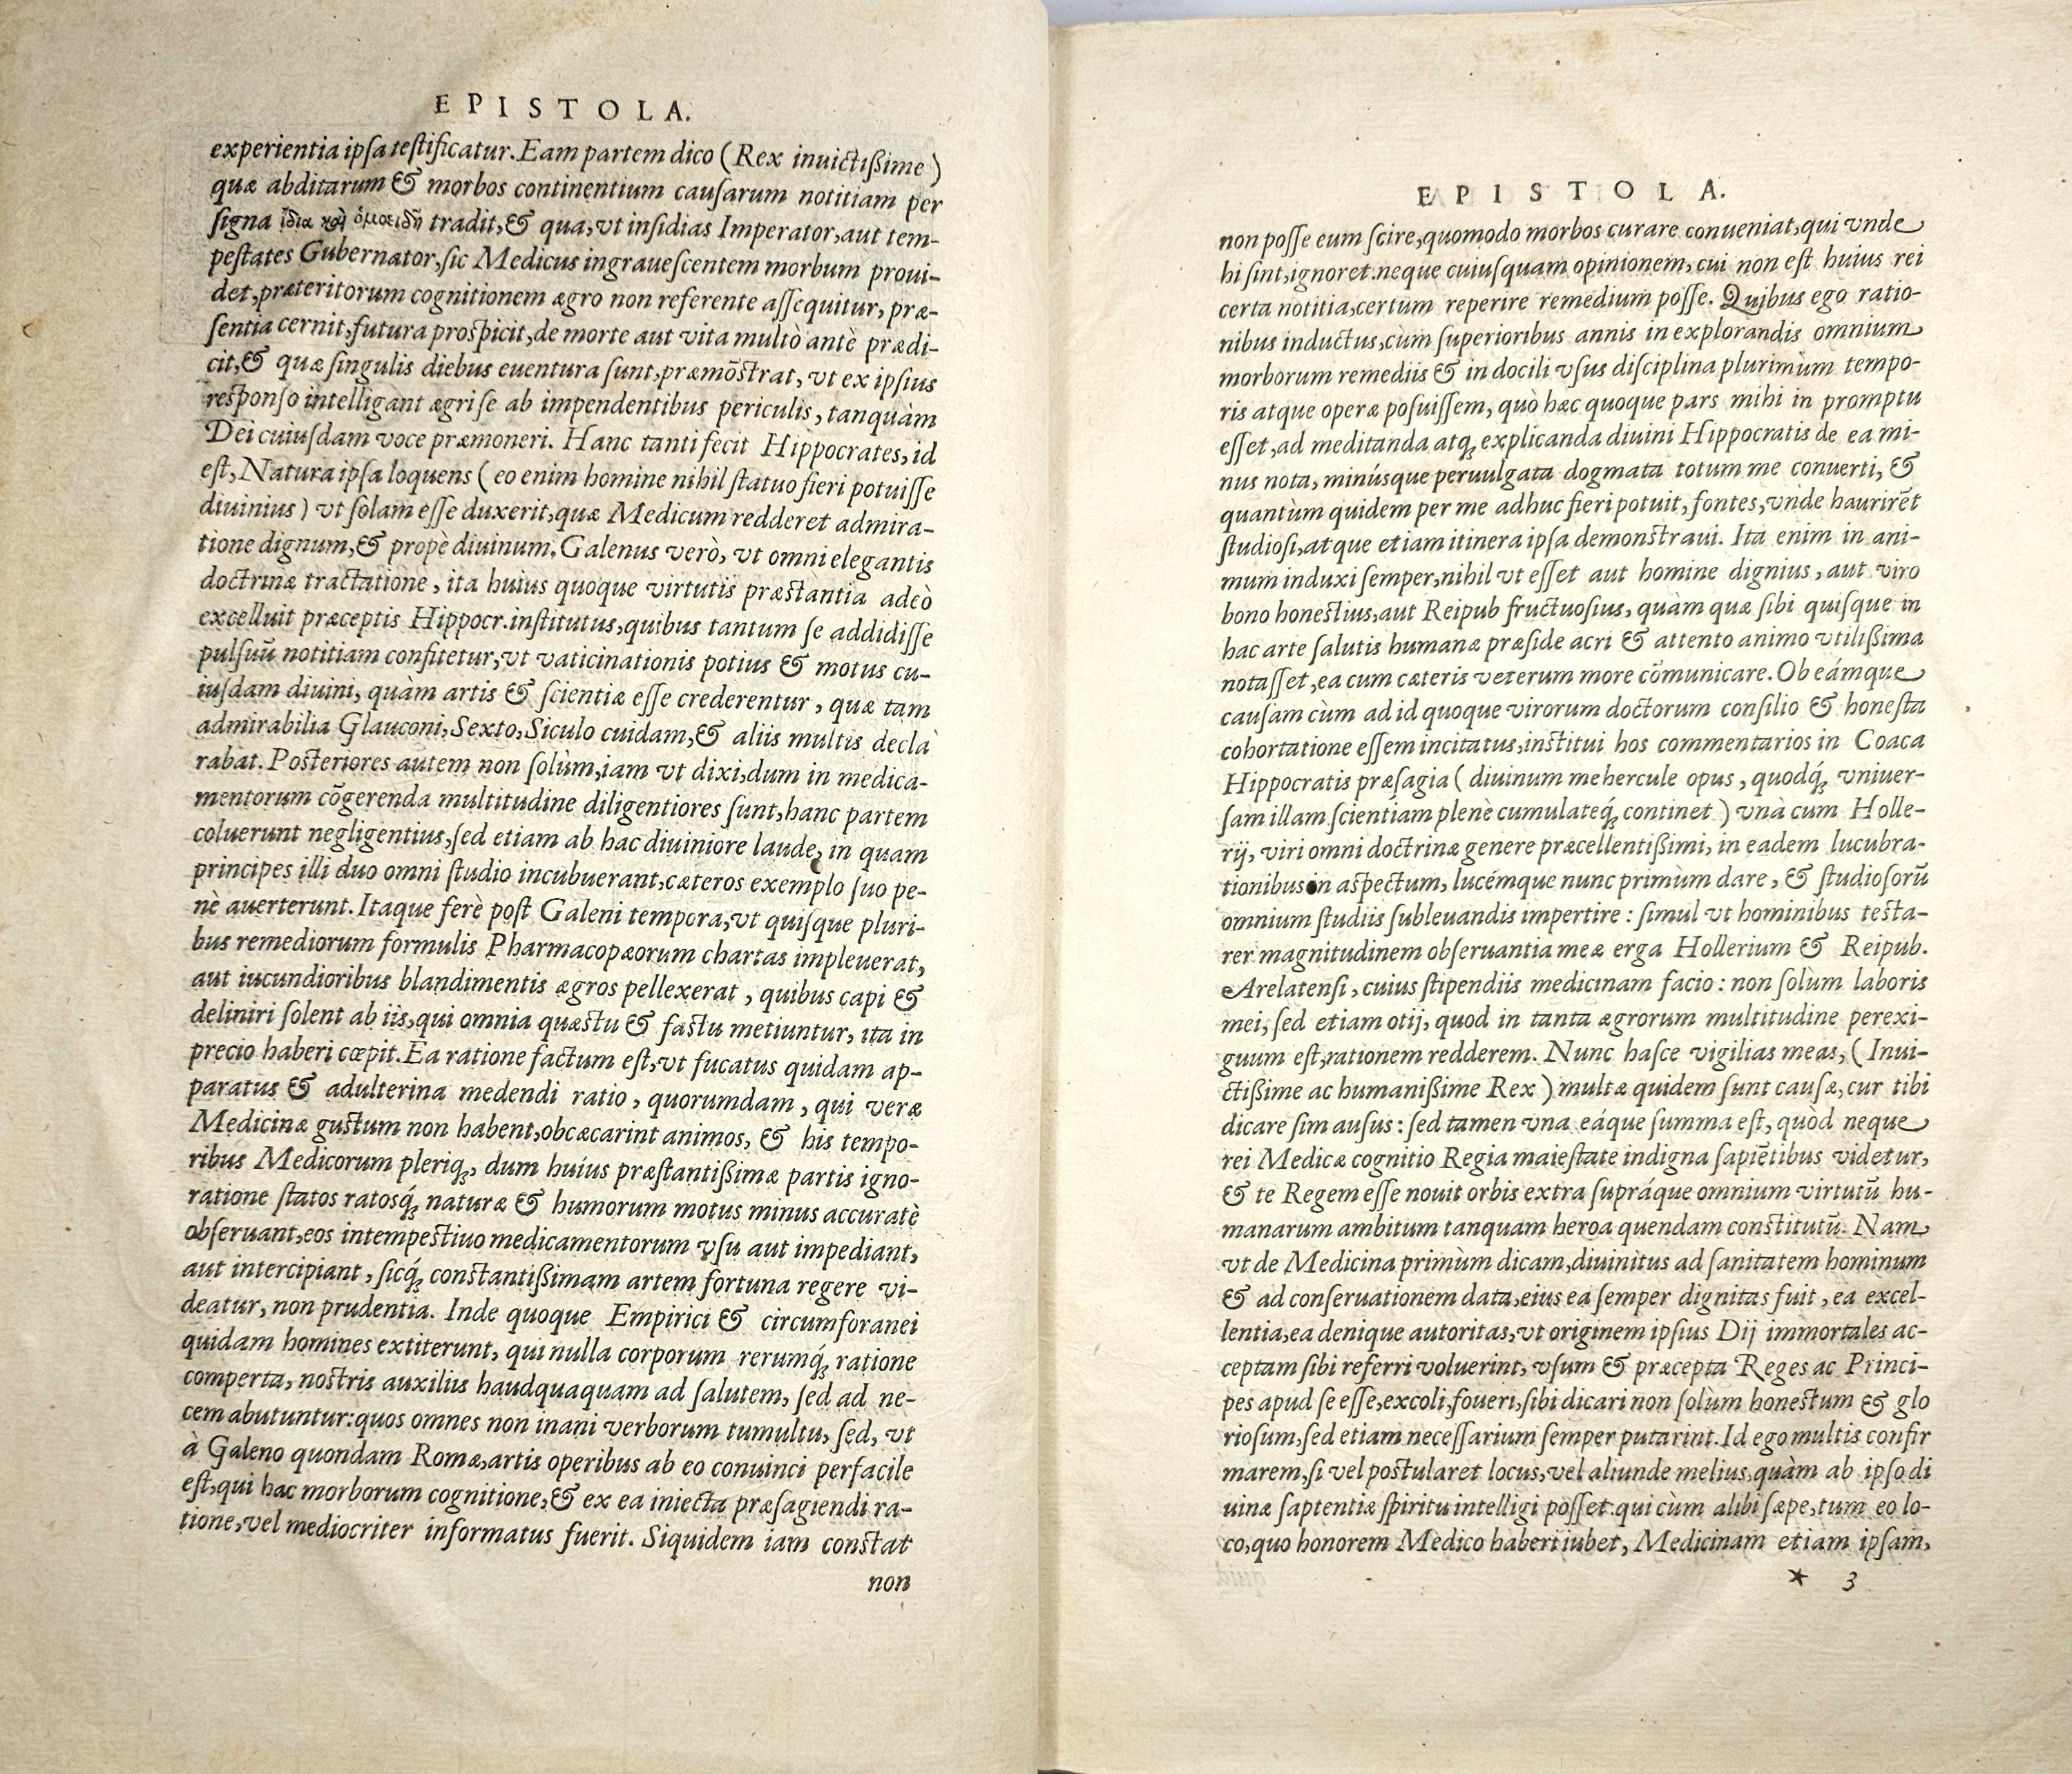 EPISTOLA.
experientia ipſa teſtificatur. Eam partem dico (Rex inuictißime)
quæ abditarum & morbos continentium cauſarum notitiam per
ſigna ἴδια καὶ ὁμοειδῆ tradit, & qua, vt inſidias Imperator, aut tem-
peſtates Gubernator, ſic Medicus ingraueſcentem morbum proui-
det, præteritorum cognitionem ægro non referente aſſequitur, præ-
ſentia cernit, futura proſpicit, de morte aut vita multò antè prædi-
cit, & quæ ſingulis diebus euentura ſunt, præmõſtrat, vt ex ipſius
reſponſo intelligant ægri ſe ab impendentibus periculis, tanquàm
Dei cuiuſdam voce præmoneri. Hanc tanti fecit Hippocrates, id
eſt, Natura ipſa loquens (eo enim homine nihil ſtatuo fieri potuiſſe
diuinius) vt ſolam eſſe duxerit, quæ Medicum redderet admira-
tione dignum, & propè diuinum. Galenus verò, vt omni elegantis
doctrinæ tractatione, ita huius quoque virtutis præſtantia adeò
excelluit præceptis Hippocr. inſtitutus, quibus tantum ſe addidiſſe
pulſuũ notitiam confitetur, vt vaticinationis potius & motus cu-
iuſdam diuini, quàm artis & ſcientiæ eſſe crederentur, quæ tam
admirabilia Glauconi, Sexto, Siculo cuidam, & aliis multis decla
rabat. Poſteriores autem non ſolùm, iam vt dixi, dum in medica-
mentorum cõgerenda multitudine diligentiores ſunt, hanc partem
coluerunt negligentius, ſed etiam ab hac diuiniore laude, in quam
principes illi duo omni ſtudio incubuerant, cæteros exemplo ſuo pe-
nè auerterunt. Itaque ferè poſt Galeni tempora, vt quiſque pluri-
bus remediorum formulis Pharmacopæorum chartas impleuerat,
aut iucundioribus blandimentis ægros pellexerat, quibus capi &
deliniri ſolent ab iis, qui omnia quæſtu & faſtu metiuntur, ita in
precio haberi cœpit. Ea ratione factum eſt, vt fucatus quidam ap-
paratus & adulterina medendi ratio, quorumdam, qui veræ
Medicinæ guſtum non habent, obcæcarint animos, & his tempo-
ribus Medicorum pleriq;, dum huius præſtantißimæ partis igno-
ratione ſtatos ratosq́; naturæ & humorum motus minus accuratè
obſeruant, eos intempeſtiuo medicamentorum vſu aut impediant,
aut intercipiant, ſicq́; conſtantißimam artem fortuna regere vi-
deatur, non prudentia. Inde quoque Empirici & circumforanei
quidam homines extiterunt, qui nulla corporum rerumq́; ratione
comperta, noſtris auxiliis haudquaquam ad ſalutem, ſed ad ne-
cem abutuntur: quos omnes non inani verborum tumultu, ſed, vt
à Galeno quondam Romæ, artis operibus ab eo conuinci perfacile
eſt, qui hac morborum cognitione, & ex ea iniecta præſagiendi ra-
tione, vel mediocriter informatus fuerit. Siquidem iam conſtat
non
EPISTOLA.
non poſſe eum ſcire, quomodo morbos curare conueniat, qui vnde
hi ſint, ignoret. neque cuiuſquam opinionem, cui non eſt huius rei
certa notitia, certum reperire remedium poſſe. Quibus ego ratio-
nibus inductus, cùm ſuperioribus annis in explorandis omnium
morborum remediis & in docili vſus diſciplina plurimùm tempo-
ris atque operæ poſuiſſem, quò hæc quoque pars mihi in promptu
eſſet, ad meditanda atq; explicanda diuini Hippocratis de ea mi-
nus nota, minúsque peruulgata dogmata totum me conuerti, &
quantùm quidem per me adhuc fieri potuit, fontes, vnde haurirẽt
ſtudioſi, atque etiam itinera ipſa demonſtraui. Ita enim in ani-
mum induxi ſemper, nihil vt eſſet aut homine dignius, aut viro
bono honeſtius, aut Reipub fructuoſius, quàm quæ ſibi quiſque in
hac arte ſalutis humanæ præſide acri & attento animo vtilißima
notaſſet, ea cum cæteris veterum more cõmunicare. Ob eámque
cauſam cùm ad id quoque virorum doctorum conſilio & honeſta
cohortatione eſſem incitatus, inſtitui hos commentarios in Coaca
Hippocratis præſagia (diuinum mehercule opus, quodq́; vniuer-
ſam illam ſcientiam plenè cumulateq́; continet) vnà cum Holle-
rij, viri omni doctrinæ genere præcellentißimi, in eadem lucubra-
tionibus in aſpectum, lucémque nunc primùm dare, & ſtudioſorũ
omnium ſtudiis ſubleuandis impertire: ſimul vt hominibus teſta-
rer magnitudinem obſeruantia meæ erga Hollerium & Reipub.
Arelatenſi, cuius ſtipendiis medicinam facio: non ſolùm laboris
mei, ſed etiam otij, quod in tanta ægrorum multitudine perexi-
guum eſt, rationem redderem. Nunc haſce vigilias meas, (Inui-
ctißime ac humanißime Rex) multæ quidem ſunt cauſæ, cur tibi
dicare ſim auſus: ſed tamen vna eáque ſumma eſt, quòd neque
rei Medicæ cognitio Regia maieſtate indigna ſapiẽtibus videtur,
& te Regem eſſe nouit orbis extra ſupráque omnium virtutũ hu-
manarum ambitum tanquam heroa quendam conſtitutũ. Nam
vt de Medicina primùm dicam, diuinitus ad ſanitatem hominum
& ad conſeruationem data, eius ea ſemper dignitas fuit, ea excel-
lentia, ea denique autoritas, vt originem ipſius Dij immortales ac-
ceptam ſibi referri voluerint, vſum & præcepta Reges ac Princi-
pes apud ſe eſſe, excoli, foueri, ſibi dicari non ſolùm honeſtum & glo
rioſum, ſed etiam neceſſarium ſemper putarint. Id ego multis confir
marem, ſi vel poſtularet locus, vel aliunde melius, quàm ab ipſo di
uinæ ſapientiæ ſpiritu intelligi poſſet. qui cùm alibi ſæpe, tum eo lo-
co, quo honorem Medico haberi iubet, Medicinam etiam ipſam,
* 3